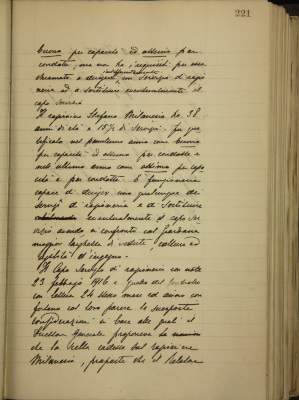 221
buono per capacità ed ottimo per
condotta, ma non ha i requisiti per esser
chiamato a dirigere indifferentemente un servizio di ragio
neria ed a sostituire eventualmente il
capo servizio
Il ragioniere Stefano Milanesio ha 38
anni di età e 15½ di servizio. Fu qua
lificato nel penultimo anno con buono
per capacità ed ottimo per condotta e
nell'ultimo anno con ottimo per capa
cità e per condotta. È funzionario
capace di dirigere una qualunque dei
servizi di ragioneria e di sostituire
eventualmente il capo ser
vizio avendo a confronto col Giordana
maggior larghezza di vedute, coltura ed
agilità d'ingegno.
Il Capo Servizio di ragioneria con note
23 febbraio 1916 e quella del
con lettera 24 stesso mese ed anno con
fortano col loro parere le suesposte
considerazioni in base alle quali il
Direttore Generale proponeva
che la scelta cadesse sul ragioniere
Milanesio, proposta che il